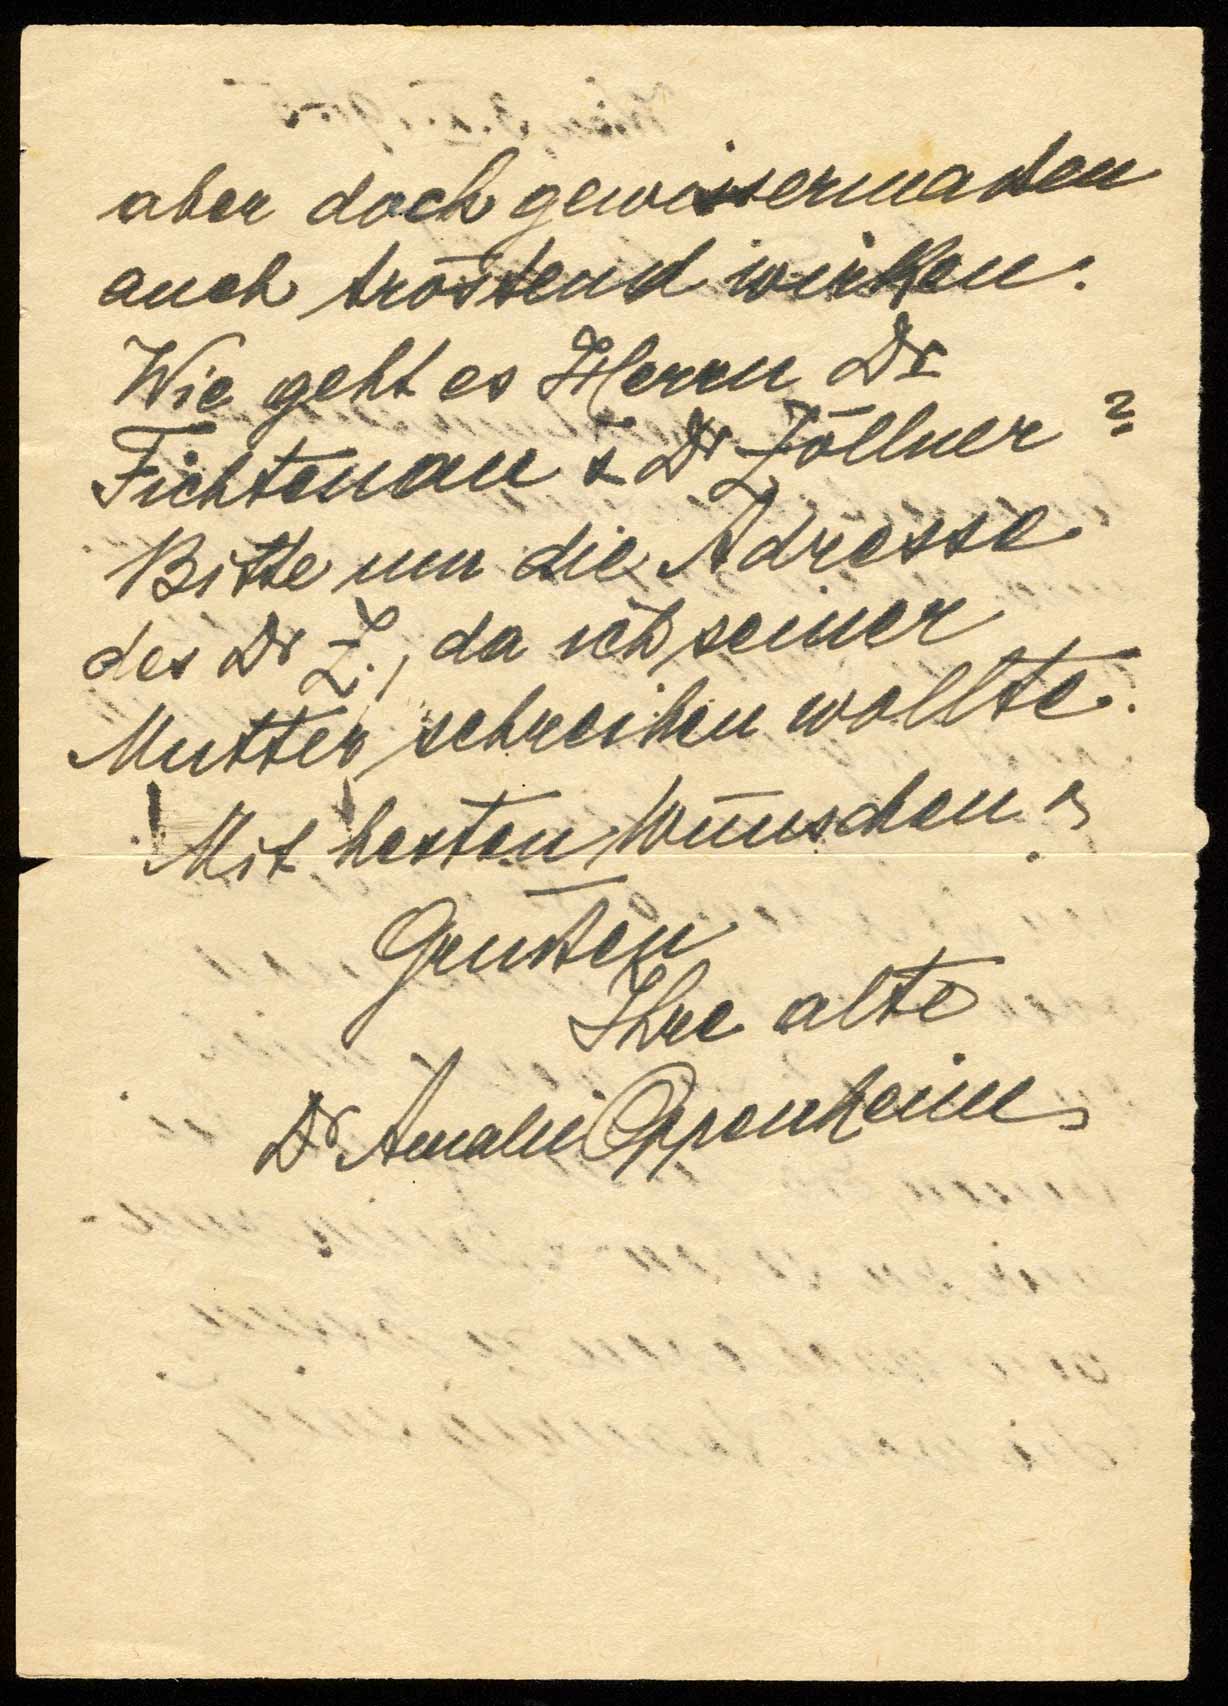 aber doch gewissermaßen
auch tröstend wirken.
Wie geht es Herrn Dr
Fichtenau & Dr Zöllner?
Bitte um die Adresse
des Dr Z., da ich seiner
Mutter schreiben wollte.
! Mit besten Wünschen &
Grüßen
Ihre alte
Dr Amalie Oppenheim